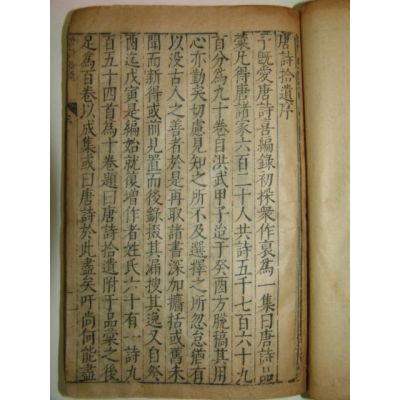 唐詩拾遺序
予既愛唐詩喜編錄初採衆作裒爲一集曰唐詩品
彙凡得唐諸家六百二十人共詩五千七百六十九
首分爲九十卷自洪武甲子迨于癸酉方脫稿其用
心亦勤矣切慮見知之所不及選擇之所忽怠猶有
以没古人之善者於是再取諸書深加擴括或舊未
聞而新得或前見置而後錄掇其漏搜其逸又自癸
酉迄戊寅是編始就復增作者姓氏六十有一詩九
百五十四首爲十卷題曰唐詩拾遺附于品彙之後
足爲百卷以成集或曰唐詩於此盡矣吁尚何能盡